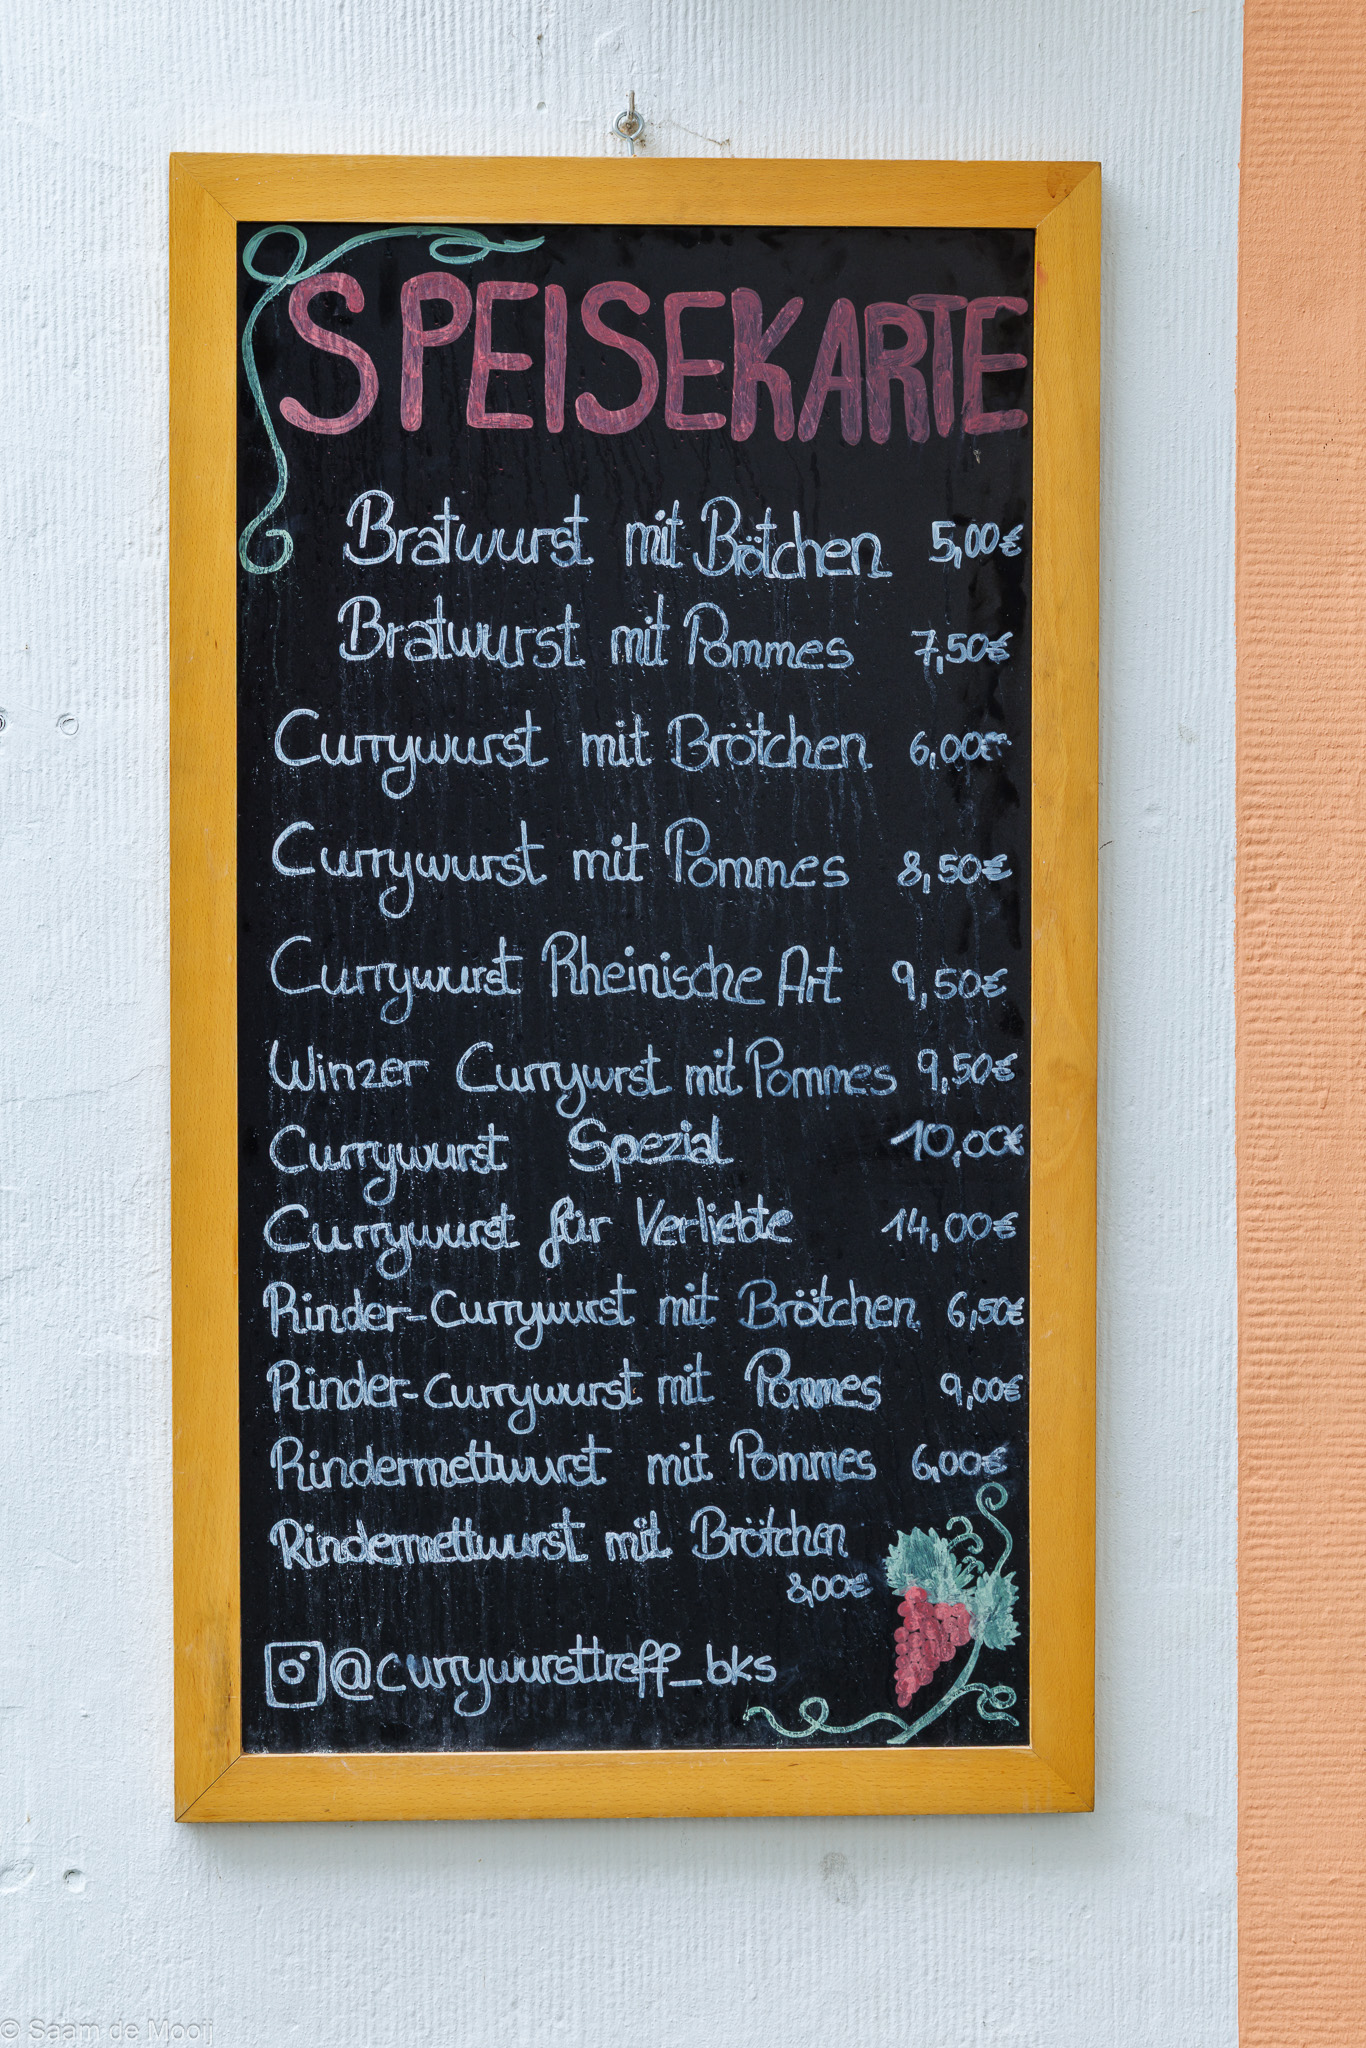 SPEISEKARTE
Bratwurst mit Brötchen 5,00€
Bratwurst mit Pommes 7,50€
Currywurst mit Brötchen 6,00€
Currywurst mit Pommes 8,50€
Currywurst Rheinische Art 9,50€
Winzer Currywrst mit Pommes 9,50€
Currywurst Spezial 10,00€
Currywurst für Verliebte 14,00€
Rinder-Currywurst mit Brötchen 6,50€
Rinder-Currywurst mit Pommes 9,00€
Rindermettwurst mit Pommes 6,00€
Rindermettwurst mit Brötchen
8,00€
@currywursttreff_bks
© Saam de Mooij